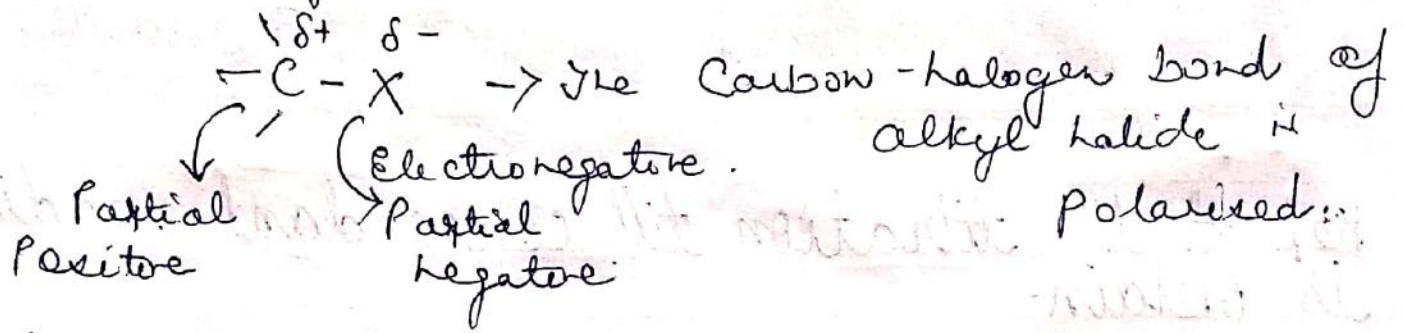 δ+ δ-
-C-X -> The Carbon-halogen bond of
alkyl halide is
Polarized.
Electronegative.
Partial
Positive
Partial
negative